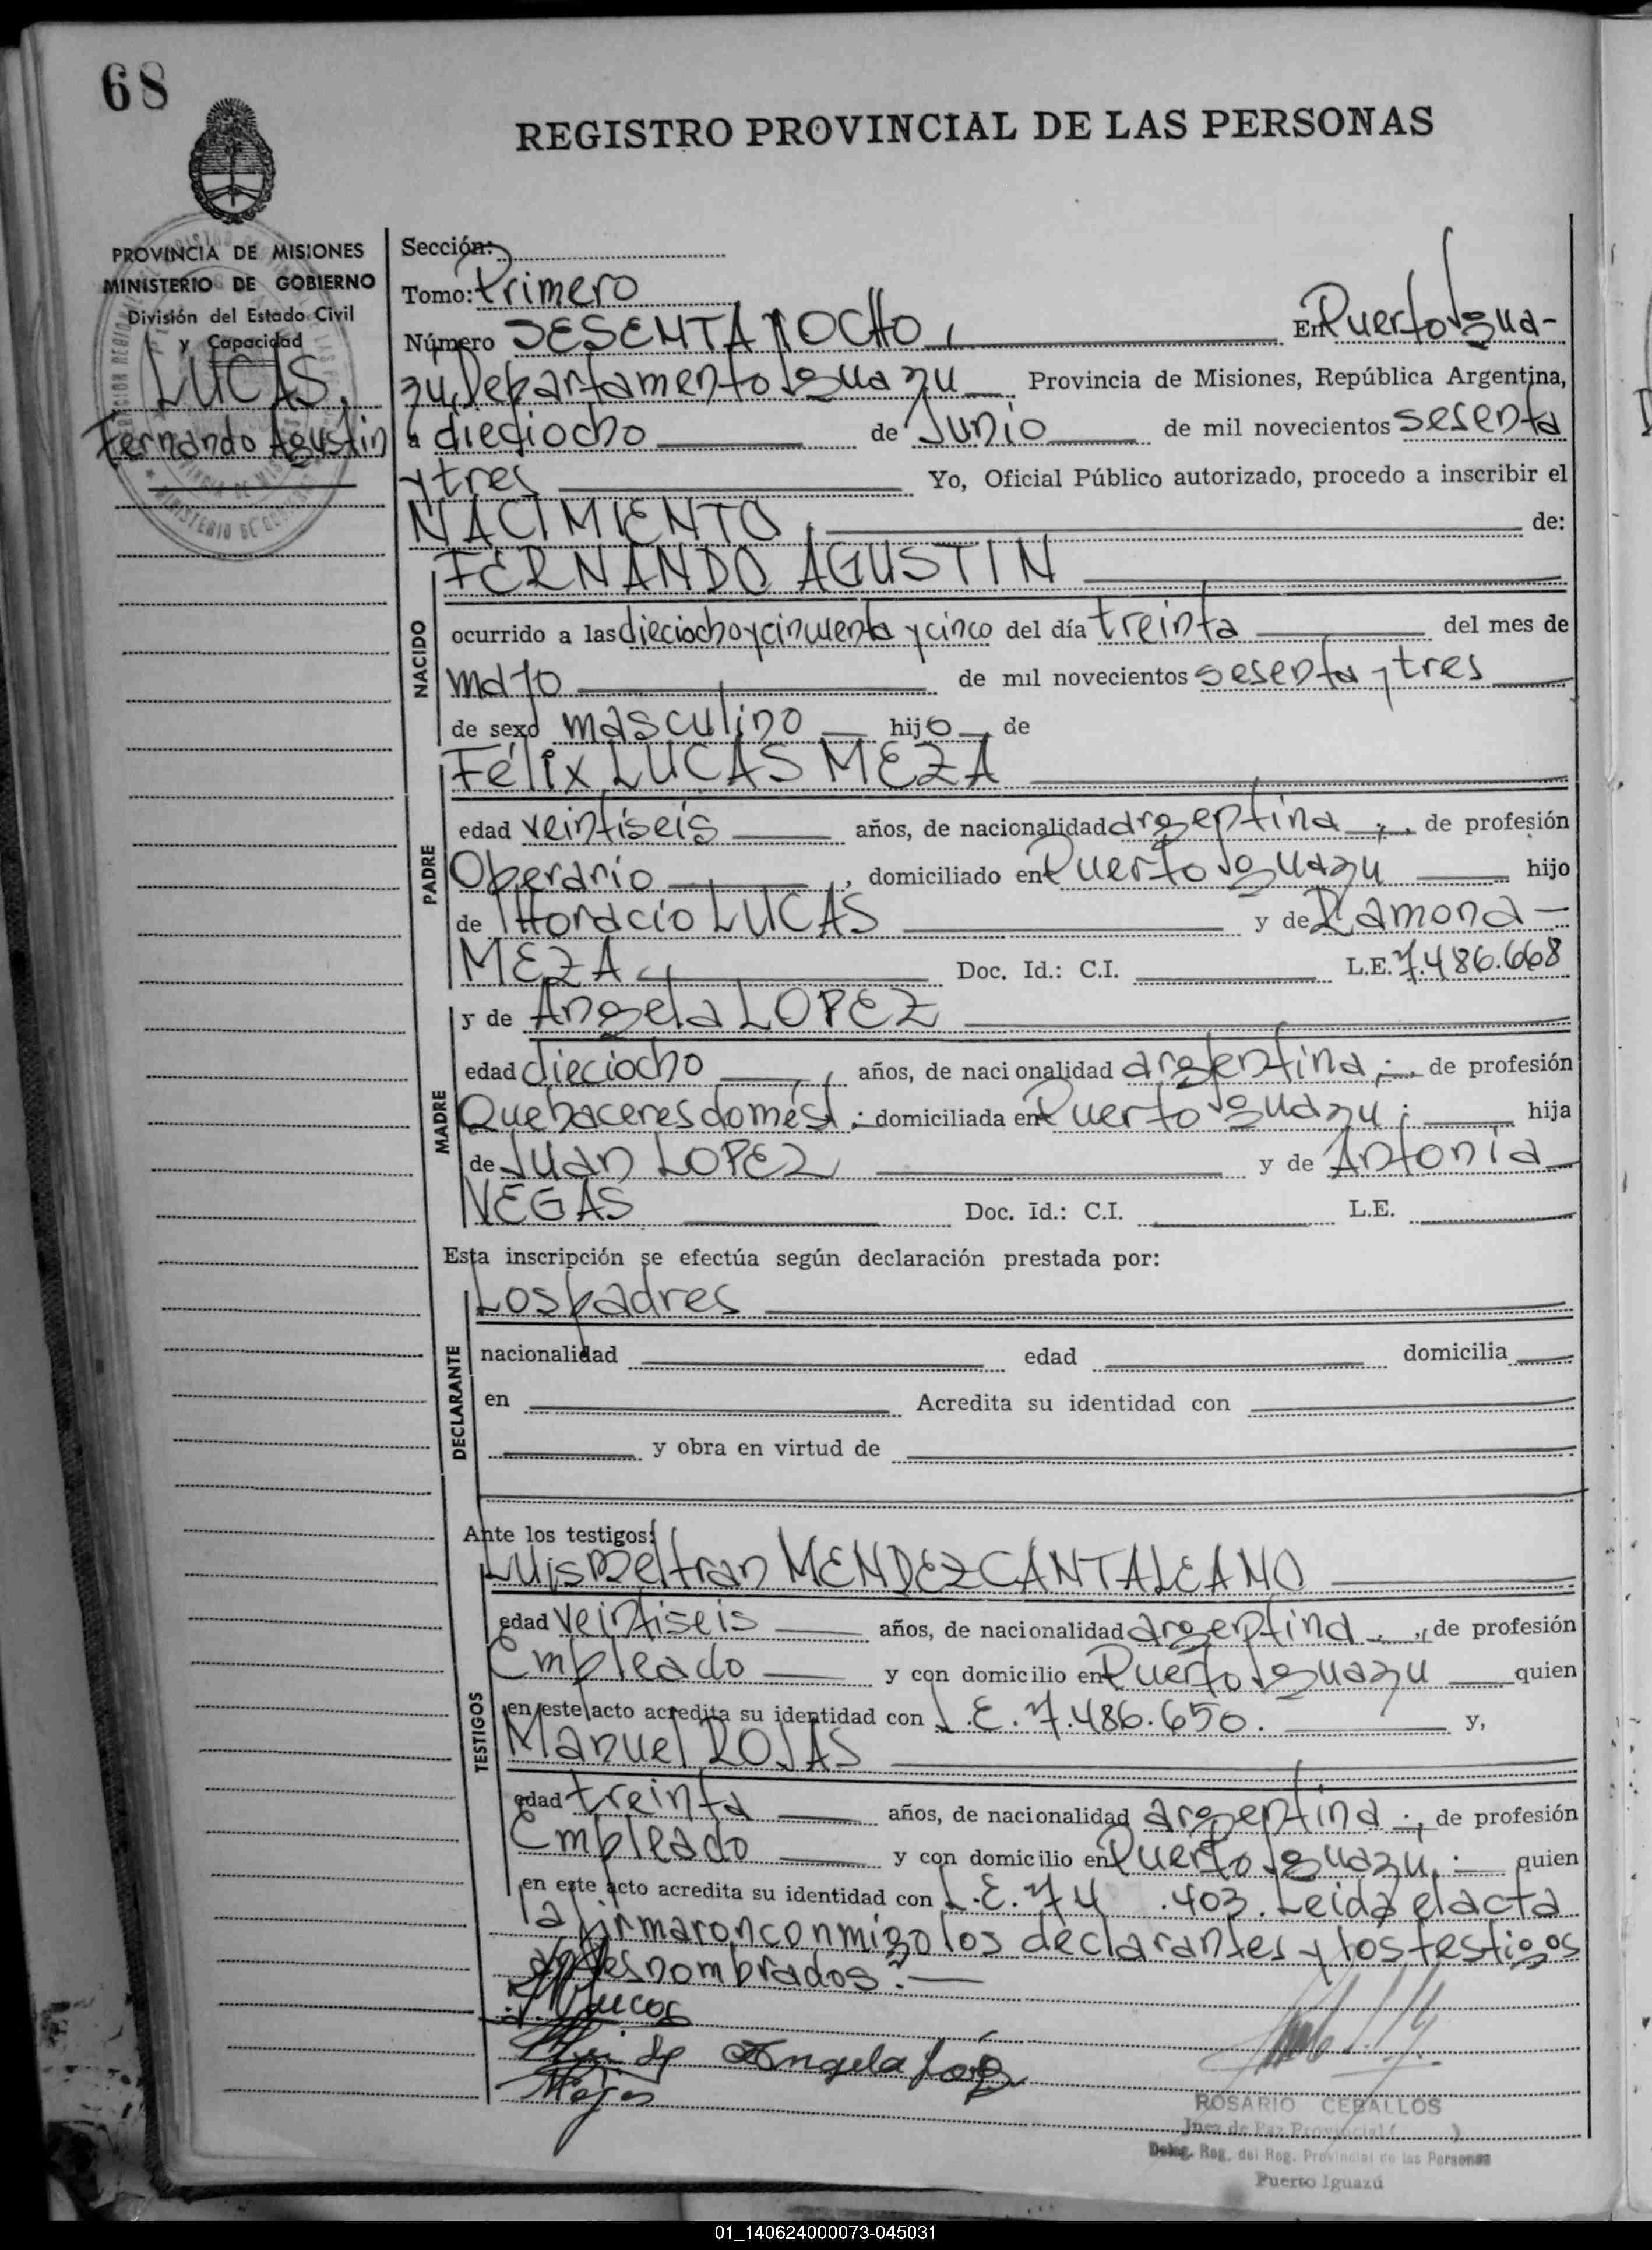 68
REGISTRO PROVINCIAL DE LAS PERSONAS
PROVINCIA DE MISIONES
MINISTERIO DE GOBIERNO
División del Estado Civil
y Capacidad
LUCAS,
Fernando Agustin
Sección:
Tomo: Primero
Número SESENTA Y OCHO, En Puerto Igua-
zu, Departamento Iguazu Provincia de Misiones, República Argentina,
a dieciocho de Junio de mil novecientos sesenta
y tres Yo, Oficial Público autorizado, procedo a inscribir el
NACIMIENTO, de:
FERNANDO AGUSTIN
NACIDO
ocurrido a las dieciocho y cincuenta y cinco del día treinta del mes de
mayo de mil novecientos sesenta y tres
de sexo masculino hijo de
Félix LUCAS MEZA
PADRE
edad veintiseis años, de nacionalidad argentina, de profesión
Oberario, domiciliado en Puerto Iguazu hijo
de Horacio LUCAS y de Ramona-
MEZA Doc. Id.: C.I. L.E. 7.486.668
y de Angela LOPEZ
MADRE
edad dieciocho, años, de nacionalidad argentina, de profesión
Quehaceres domést. domiciliada en Puerto Iguazu; hija
de Juan LOPEZ y de Antonia
VEGAS Doc. Id.: C.I. L.E.
Esta inscripción se efectúa según declaración prestada por:
Los padres
DECLARANTE
nacionalidad edad domicilia
en Acredita su identidad con
y obra en virtud de
Ante los testigos:
Luis Beltran MENDEZ CANTALEANO
TESTIGOS
edad veintiseis años, de nacionalidad argentina, de profesión
Empleado y con domicilio en Puerto Iguazu quien
en este acto acredita su identidad con L.E. 7.486.650. y,
Manuel ROJAS
edad treinta años, de nacionalidad argentina; de profesión
Empleado y con domicilio en Puerto Iguazu. quien
en este acto acredita su identidad con L.E. 74 .403. Leida el acta
la firmaron conmigo los declarantes y los testigos
antes nombrados.-
Lucas
Angela López
Rojas
ROSARIO CEBALLOS
Juez de Paz Provincial ( )
Deleg. Reg. del Reg. Provincial de las Personas
Puerto Iguazú
01_140624000073-045031